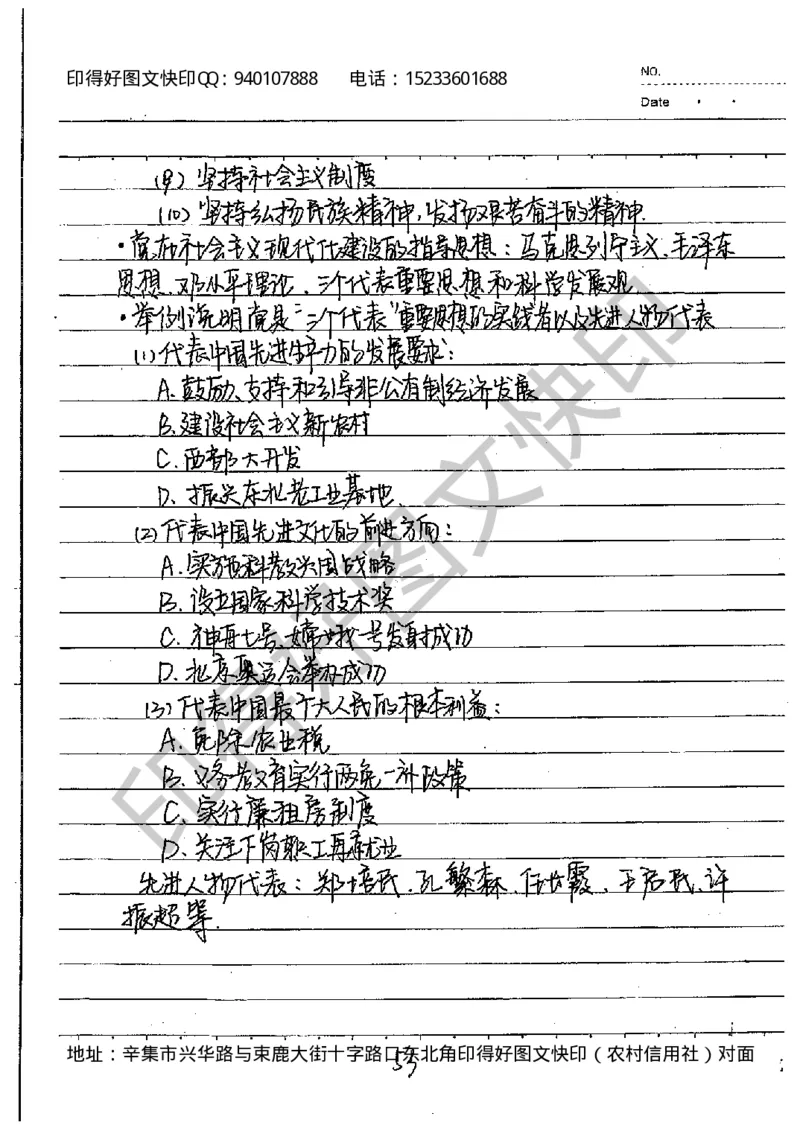 印得好图文快印QQ：940107888 电话：15233601688
NO.
Date
(9) 坚持社会主义制度
(10) 坚持弘扬民族精神，发扬艰苦奋斗的精神.
·党在社会主义现代化建设的指导思想：马克思列宁主义、毛泽东
思想、邓小平理论、三个代表重要思想和科学发展观
·举例说明党是“三个代表”重要思想的实践者以及先进人物代表
(1) 代表中国先进生产力的发展要求：
A. 鼓励、支持和引导非公有制经济发展
B. 建设社会主义新农村
C. 西部大开发
D. 振兴东北老工业基地
(2) 代表中国先进文化的前进方向：
A. 实施科教兴国战略
B. 设立国家科学技术奖
C. 神舟七号、嫦娥一号发射成功
D. 北京奥运会举办成功
(3) 代表中国最广大人民的根本利益：
A. 免除农业税
B. 义务教育实行两免一补政策
C. 实行廉租房制度
D. 关注下岗职工再就业
先进人物代表：郑培民、孔繁森、任长霞、王启民、许
振超等.
印得好图文快印
地址：辛集市兴华路与束鹿大街十字路口东北角印得好图文快印（农村信用社）对面